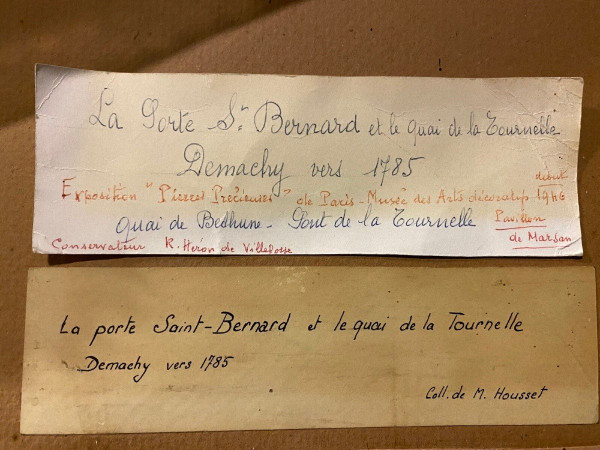 La Porte St. Bernard et le quai de la Tournelle
Demachy vers 1785
Exposition "Pierres Précieuses" de Paris - Musée des Arts décoratifs 1946
Quai de Bethune - Pont de la Tournelle Pavillon
Conservateur R. Héron de Villefosse de Marsan
La porte Saint-Bernard et le quai de la Tournelle
Demachy vers 1785
Coll. de M. Housset